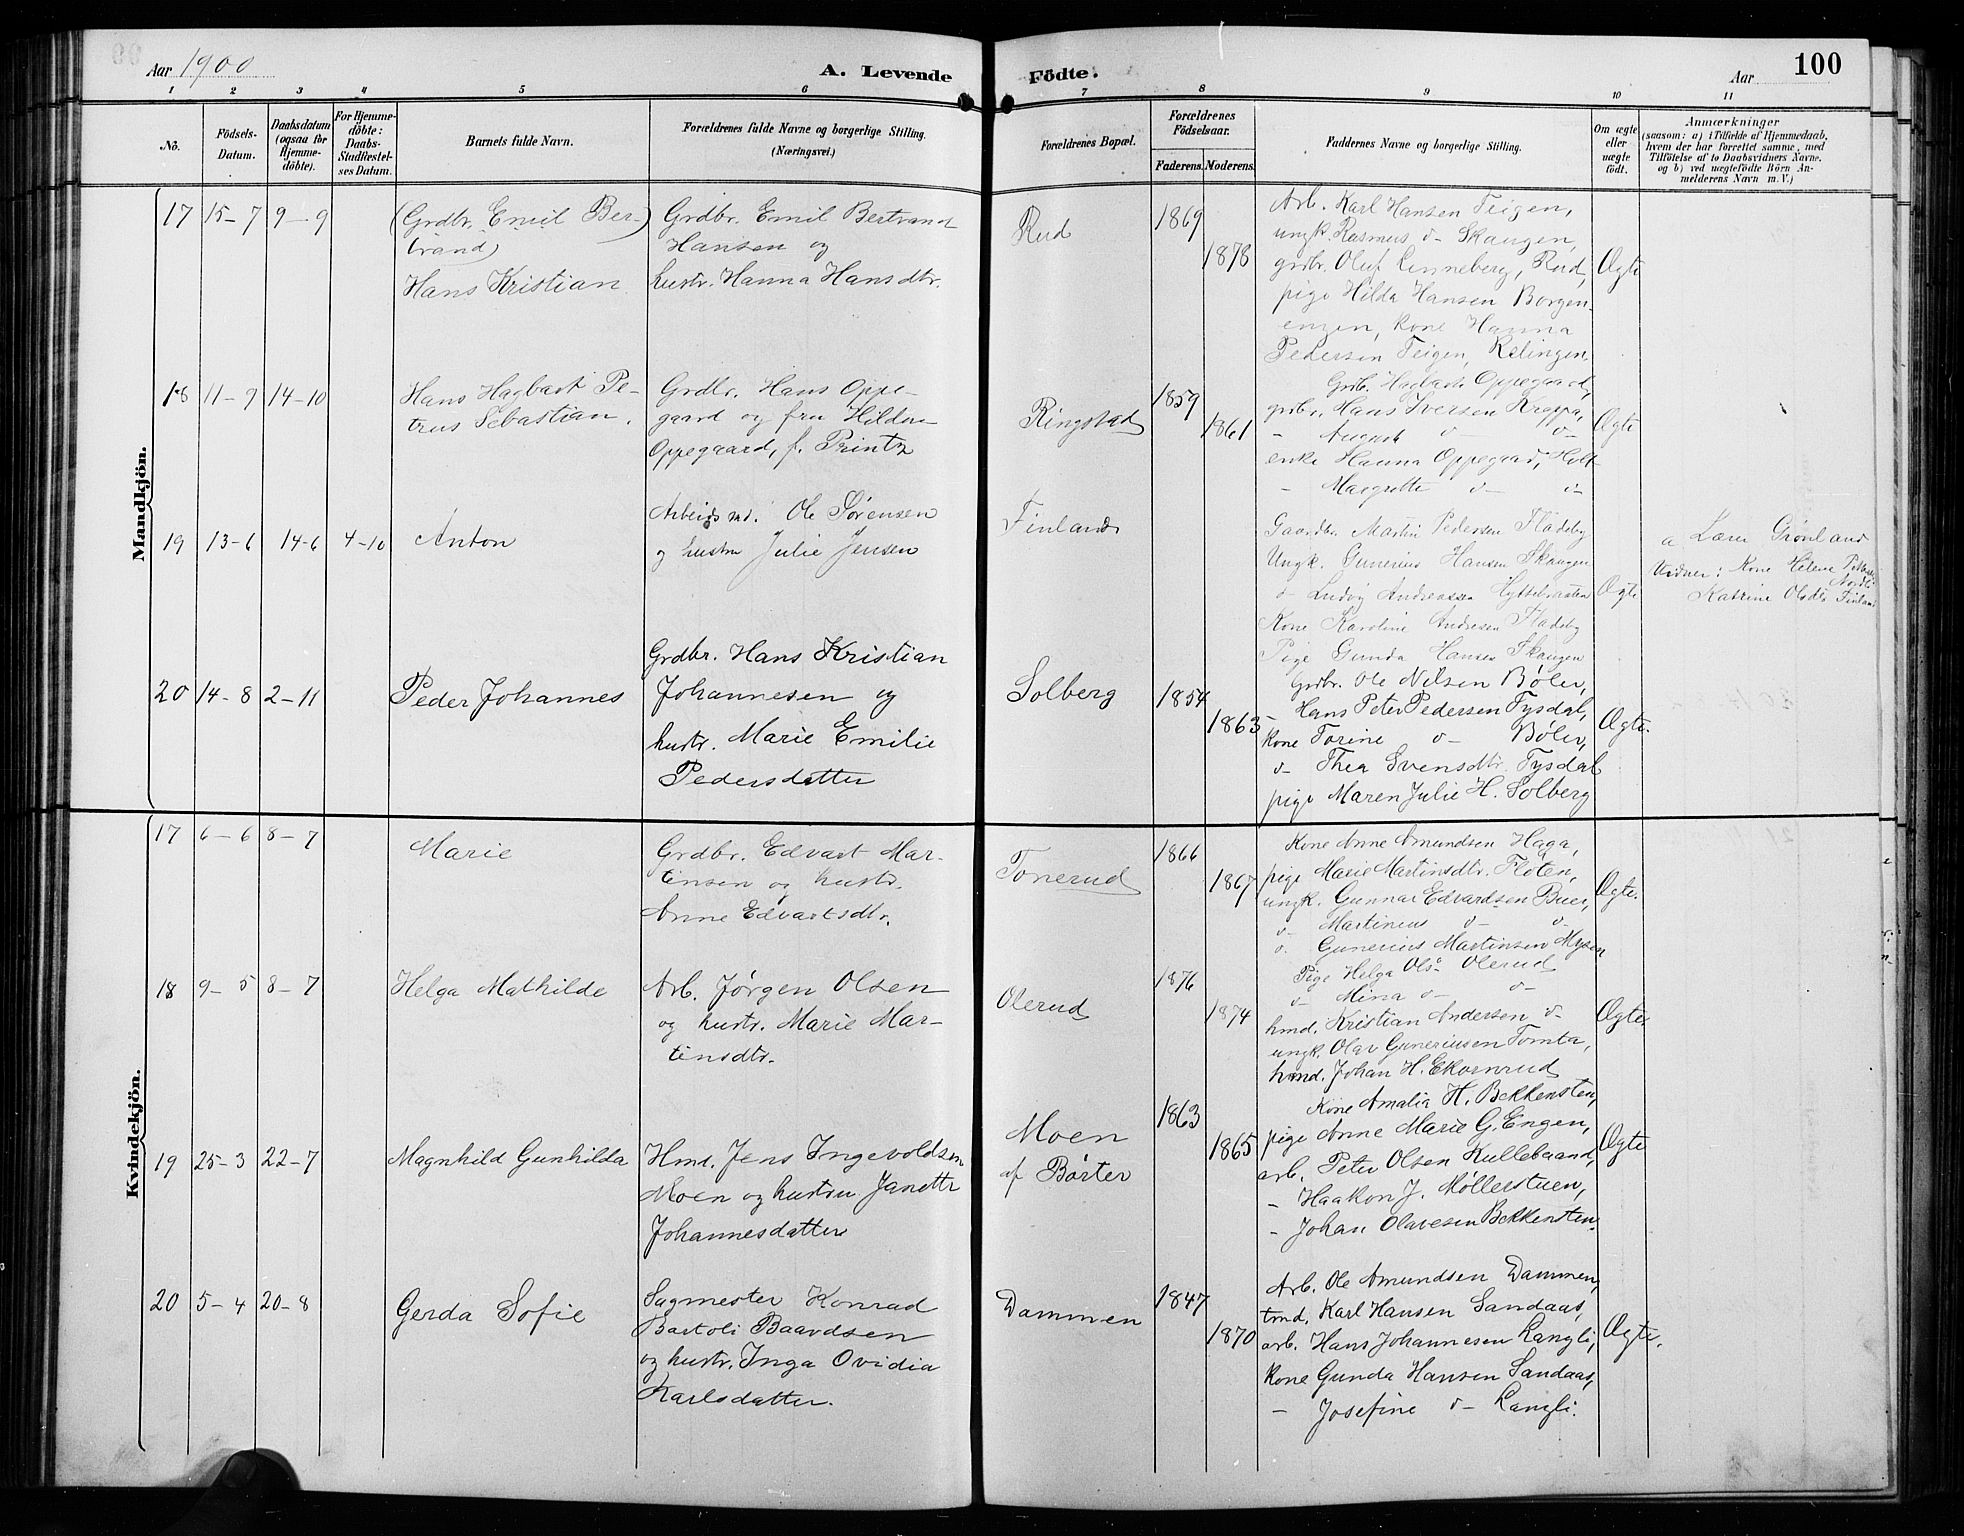 Aar 1900
A. Levende
Födte.
Aar
100
1 2 3 4 5 6 7 8 9 10 11
No.
Födsels-
Datum.
Daabsdatum
(ogsaa for
Hjemme-
döbte).
For Hjemme-
döbte:
Daabs-
Stadfæstel-
ses Datum.
Barnets fulde Navn.
Forældrenes fulde Navne og borgerlige Stilling.
(Næringsvei.)
Forældrenes Bopæl.
Forældrenes
Födselsaar.
Faderens. Moderens.
Faddernes Navne og borgerlige Stilling.
Om ægte
eller
uægte
födt.
Anmærkninger
(saasom: a) i Tilfælde af Hjemmedaab,
hvem der har forrettet samme, med
Tilföielse af to Daabsvidners Navne,
og b) ved uægtefödte Börn An-
melderens Navn m. V.)
Mandkjön.
17 15-7 9-9
(Grdbr. Emil Ber-
trand)
Hans Kristian
Grdbr. Emil Bertrand
Hansen og
hustr. Hanna Hansdtr.
Rud
1869
1878
Arb. Karl Hansen Teigen,
ungk. Rasmus v- Skaugen,
grdbr. Oluf Linneberg, Rud,
pige Hilda Hansen Borgen-
engen, kone Hanna
Pedersen Teigen, Rælingen
Ægte
18 11-9 14-10
Hans Hagbart Pe-
trus Sebastian.
Grdbr. Hans Oppe-
gaard og fru Hilda
Oppegaard, f. Printz
Ringstad
1859
1861
Grdb. Hagbart Oppegaard,
grbr. Hans Iversen Kroppa,
- August v- v-
enke Hanna Oppegaard, Holt
- Margrethe v- v-
Ægte
19 13-6 14-6 4-10
Anton
Arbeidsmd. Ole Sørensen
og hustru Julie Jensen
Finland
Gaardbr. Martin Pedersen Fladeby
Ungk. Gunerius Hansen Skaugen
v- Ludvig Andreassen
Kone Karoline Andresen Fladeby
Pige Gunda Hansen Skaugen
Ægte
a Lærer Grønland
Vidner: Kone Helene
Nordli
Katrine Olsdtr Finland
20 14-8 2-11
Peder Johannes
Grdbr. Hans Kristian
Johannesen og
hustr. Marie Emilie
Pedersdatter
Solberg
1854
1863
Grdbr. Ole Nilsen Bøler,
- Hans Peter Pedersen Tysdal,
kone Torine v- Bøler,
v- Thea Svensdtr. Tysdal
pige Maren Julie H. Solberg
Ægte.
Kvindekjön.
17 6-6 8-7
Marie
Grdbr. Edvart Mar-
tinsen og hustr.
Anne Edvartsdtr.
Tonerud
1866
1867
Kone Anne Amundsen Haga,
pige Marie Martinsdtr. Fløten,
ungk. Gunnar Edvardsen Buer,
v- Martinius v- v-
v. Gunerius Martinsen Mysen
Ægte.
18 9-5 8-7
Helga Mathilde
Arb. Jørgen Olsen
og hustr. Marie Mar-
tinsdtr.
Olerud
1876
1874
Pige Helga Ols- Olerud
v- Mina v- v-
hmd. Kristian Andersen v-
ungk. Olav Guneriusen Tomta,
hmd. Johan H. Ekornrud
Ægte.
19 25-3 22-7
Magnhild Gunhilda
Hmd. Jens Ingevoldsen
Moen og hustru Janette
Johannesdatter
Moen
af Børter
1863
1865
Kone Amalia H. Bekkensten,
pige Anne Marie G. Engen,
arb. Peter Olsen Kullebaand,
- Haakon J. Møllerstuen,
- Johan Olavesen Bekkensten.
Ægte
20 5-4 20-8
Gerda Sofie
Sagmester Konrad
Bartoli Baardsen
og hustr. Inga Ovidia
Karlsdatter.
Dammen
1847
1870
Arb. Ole Amundsen Dammen,
tmd. Karl Hansen Sandaas,
arb. Hans Johannesen Langli,
kone Gunda Hansen Sandaas,
- Josefine v- Langli.
Ægte.